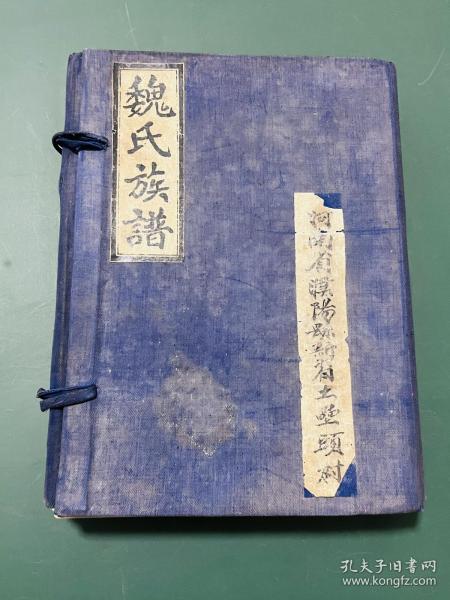 魏氏族譜
河南省濮陽縣新習土垒頭村
孔夫子旧书网
www.kongfz.com